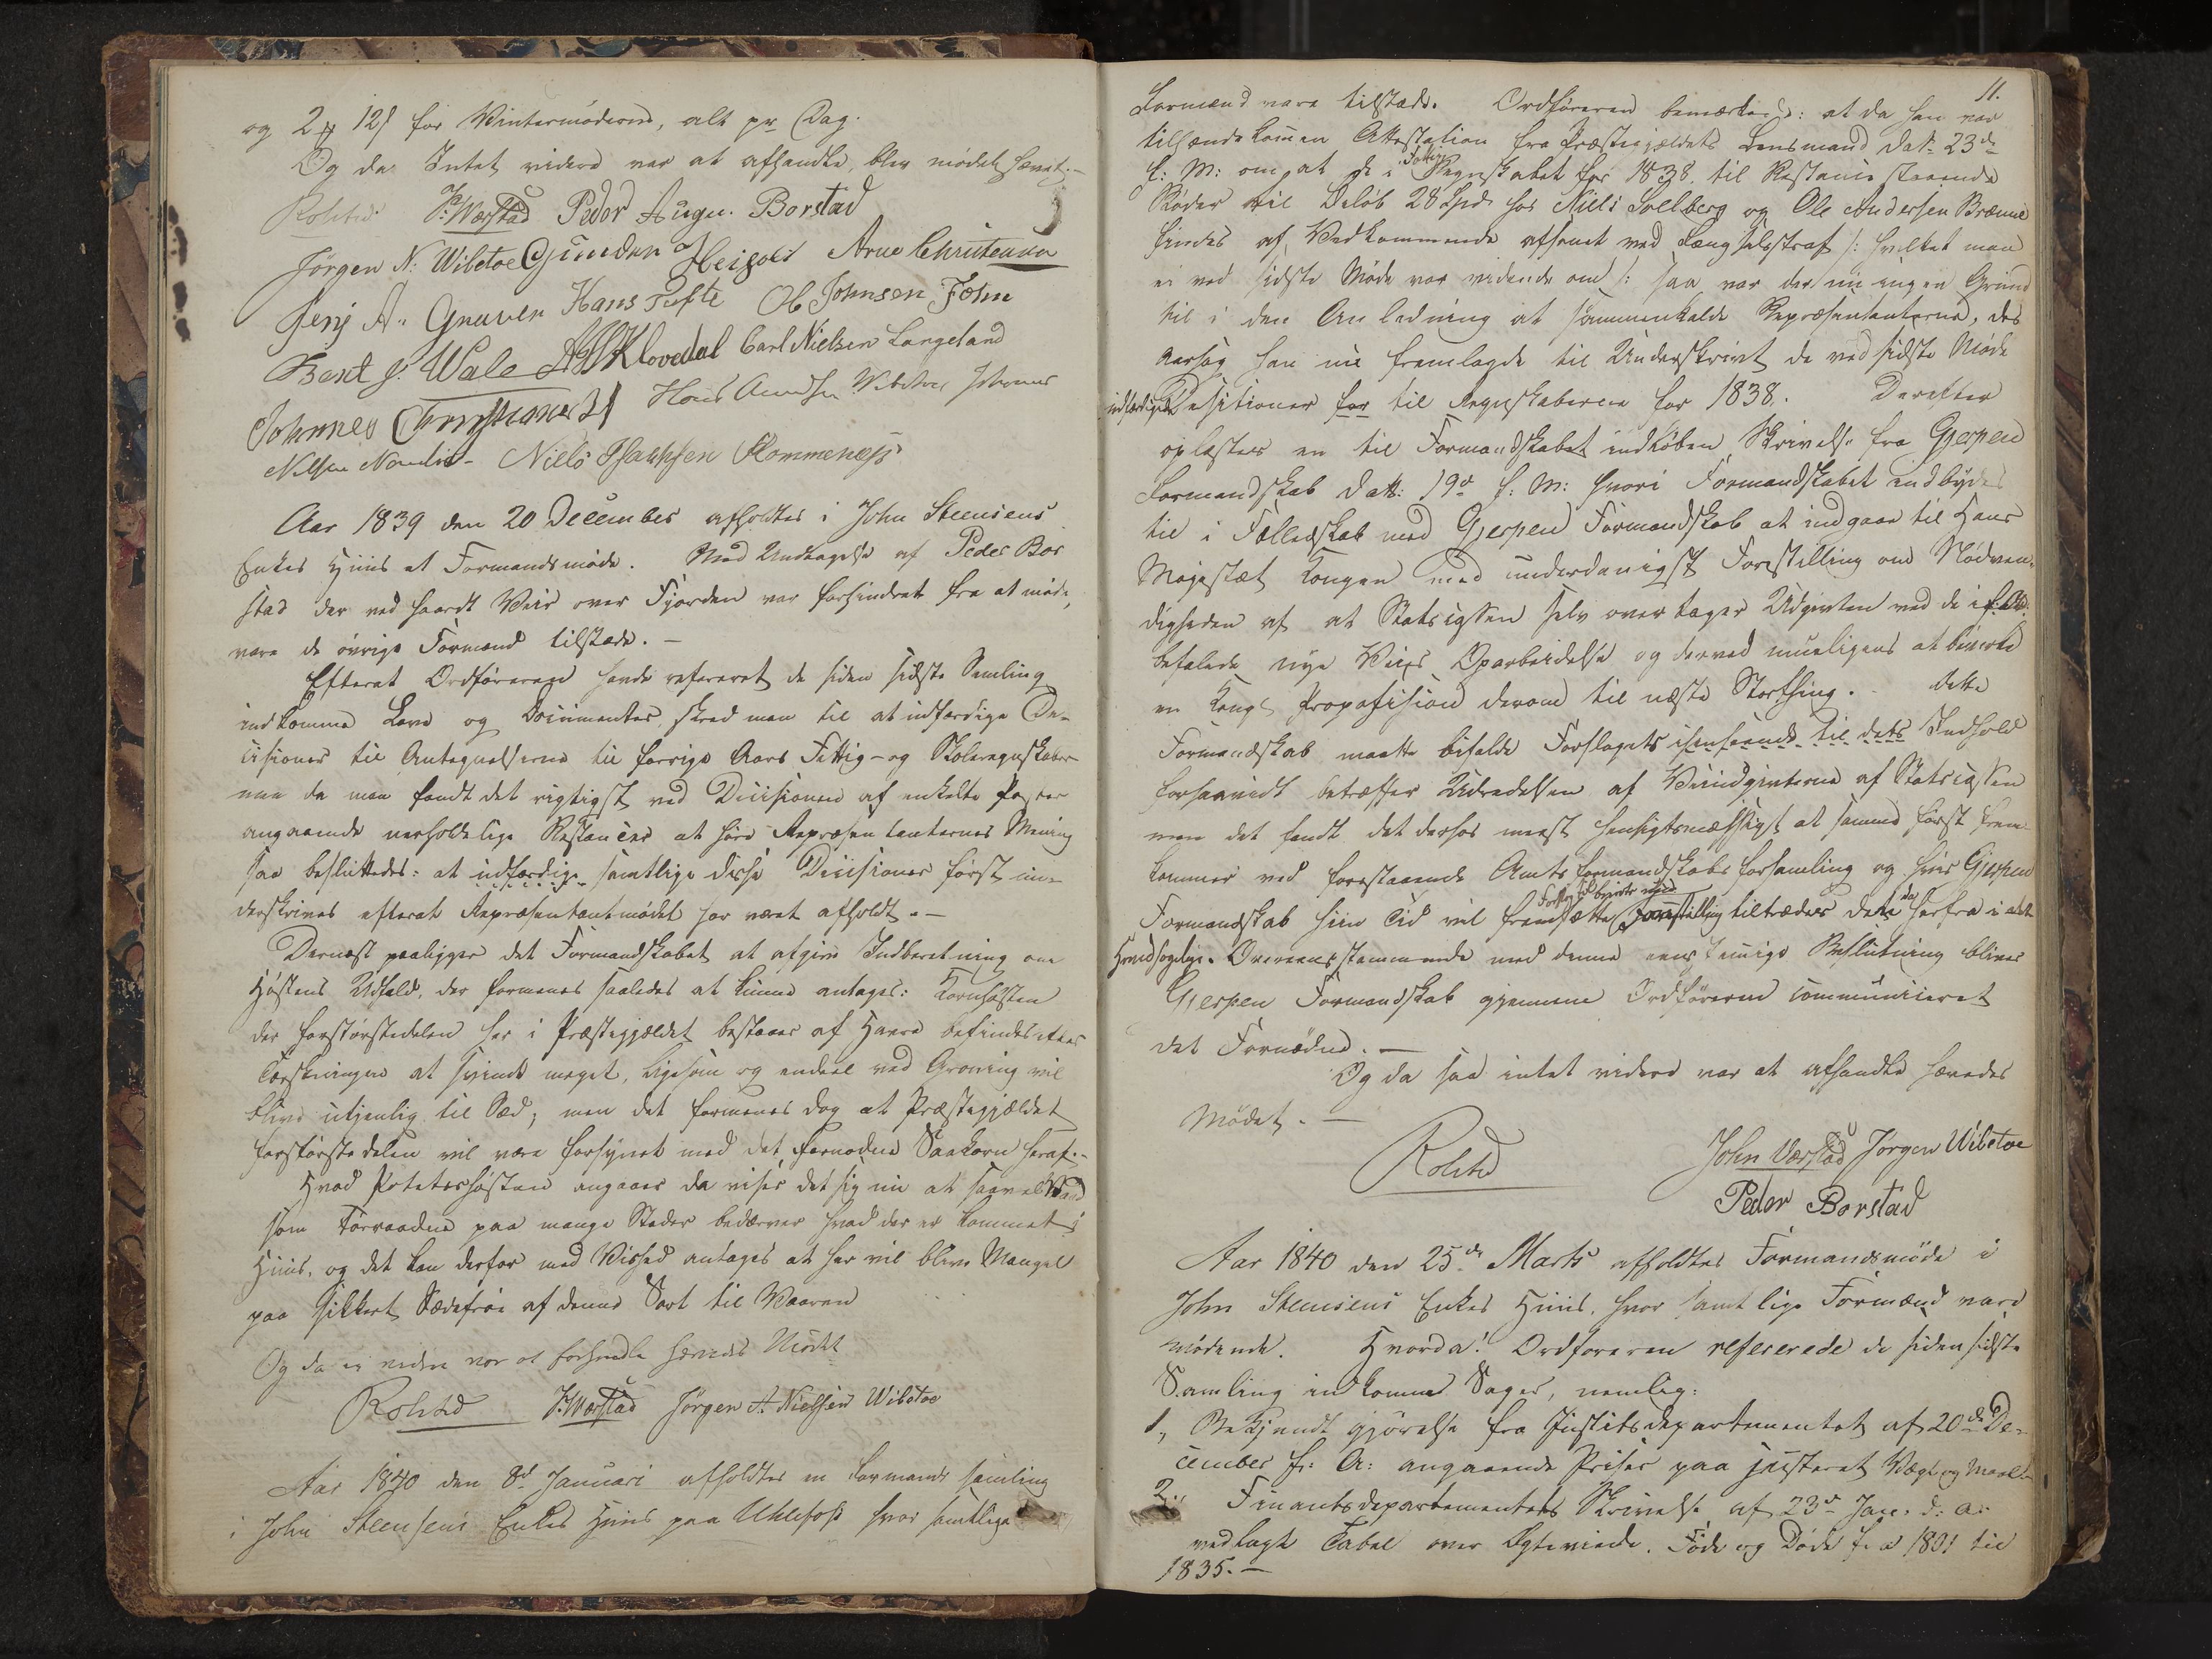 og 2 ₰ 12 s for Vintermöderne, alt pr Dag.
Og da Intet videre var at afhandle, blev mödet hævet.-
Rolsted J. Værstad Peder Augu. Borstad
Jörgen N: Wibetoe Gunder Heigset Arne Christensen
Jens A. Gruven Hans Tufte Ol. Johnsen Fæhn
Bent J. Wale Klovedal Carl Nielsen Langeland
Johannes Christianes Hans Amundsen Wibetoe Johannes
Nielsen Namlös - Niels Isachsen Flommenæs
Aar 1839 den 20 December afholdtes i John Steensens
Enkes Huus et Formandsmöde. Med Undtagelse af Peder Bor
stad der ved haardt Veir over Fjorden var forhindret fra at möde,
vare de övrige Formænd tilstæde. -
Efterat Ordföreren havde refereret de siden sidste Samling
indkomne Love og Documenter, skred man til at udfærdige De-
cisioner til Antegnelserne til forrige Aars Fattig- og Skoleregnskaber-
ne da man fandt det rigtigst ved Decisionen af enkelte Poster
angaaende uerholdelige Restancer at höre Repræsentanternes Mening
saa besluttedes: at udfærdige samtlige disse Decisioner först un-
derskrives efterat Repræsentantmödet har været afholdt. -
Dernæst paaligger det Formandskabet at afgive Indberetning om
Höstens Udfald, der formenes saaledes at kunne antages: Kornhösten
der forstörstedelen her i Præstegjældet bestaaer af Havre befindes efter
Tærskningen at svinde meget, ligesom og endeel ved Groning vil
blive utjenlig til Sæd; men det formenes dog at Præstegjældet
forstörstedelen vil være forsynet med det fornödne Saakorn heraf.-
Hvad Potetershösten angaaer da viser det sig nu at saavel Vaad
som Törraadne paa mange Steder bedærver hvad der er kommet i
Huus, og det kan derfor med Vished antages at her vil blive Mangel
paa sikkert Sædefröe af denne Sort til Vaaren
Og da ei videre var at forhandle hævedes Mödet
Rolsted J. Værstad Jörgen A. Nielsen Wibetoe
Aar 1840 den 8de Januari afholdtes en Formands samling
i John Steensens Enkes Huus paa Ulefos hvor samtlige
11.
Formænd vare tilstæde. Ordföreren bemærkede: at da han var
tilhændekommen Attestation fra Præstegjældets Lensmand dat. 23de
f: M: om at de i Fattig Regnskabet for 1838 til Restance staaende
Böder til Belöb 28 Spd. hos Niels Sollberg og Ole Andersen Brænne
findes af Vedkommende afsonet ved Fængselsstraf /: hvilket man
ei ved sidste Möde var vidende om :/ saa var der nu ingen Grund
til i den Anledning at sammenkalde Repræsentanterne, des
aarsag han nu fremlagde til Underskrivt de ved sidste Möde
udfærdigede Decisioner for til Regnskaberne for 1838. Derefter
oplæstes en til Formandskabet indlöben Skrivelse fra Gjerpen
Formandskab datt: 19de f: M: hvori Formandskabet indbydes
til i Fælledskab med Gjerpen Formandskab at indgaae til Hans
Majestæt Kongen med underdanigst Forestilling om Nödven-
digheden af at Statscassen selv overtager Udgivten ved de i
befalede nye Veies Oparbeidelse og derved mueligens at bevirke
en Kongl. Proposision derom til næste Storthing. - Dette
Formandskab maatte bifalde Forslagets i Henseende til dets Indhold
forsaavidt betræffer Udredelsen af Veiudgivterne af Statscassen
men det fandt det derhos meest hensigtsmæssigt at samme först frem
kommer ved forestaaende Amtsformandskabs forsamling og hvis Gjerpen
Formandskab siin Tid vil fremsætte Forestilling tiltrædes dette da herfra i alt
Hændsigelige. Overeensstemmende med denne eenstemmige Beslutning bliver
Gjerpen Formandskab gjennem Ordföreren communiceret
det Fornödne. -
Og da saa intet videre var at afhandle hævedes
Mödet. -
Rolsted John Værstad Jörgen Wibetoe
Peder Borstad
Aar 1840 den 25de Marts afholdtes Formandsmöde i
John Steensens Enkes Huus, hvor samtlige Formænd vare
mödende. Hvorda! Ordföreren refererede de siden sidste
Samling indkomne Sager, nemlig:
1, Bekjendtgjörelse fra Justitsdepartementet af 20de De-
cember f: A: angaaende Priser paa justeret Vægt og Maal
2., Finantsdepartementets Skrivelse af 23de Jan. d: a:
vedlagt Tabel over Egteviede, Föde og Döde fra 1801 til
1835. -